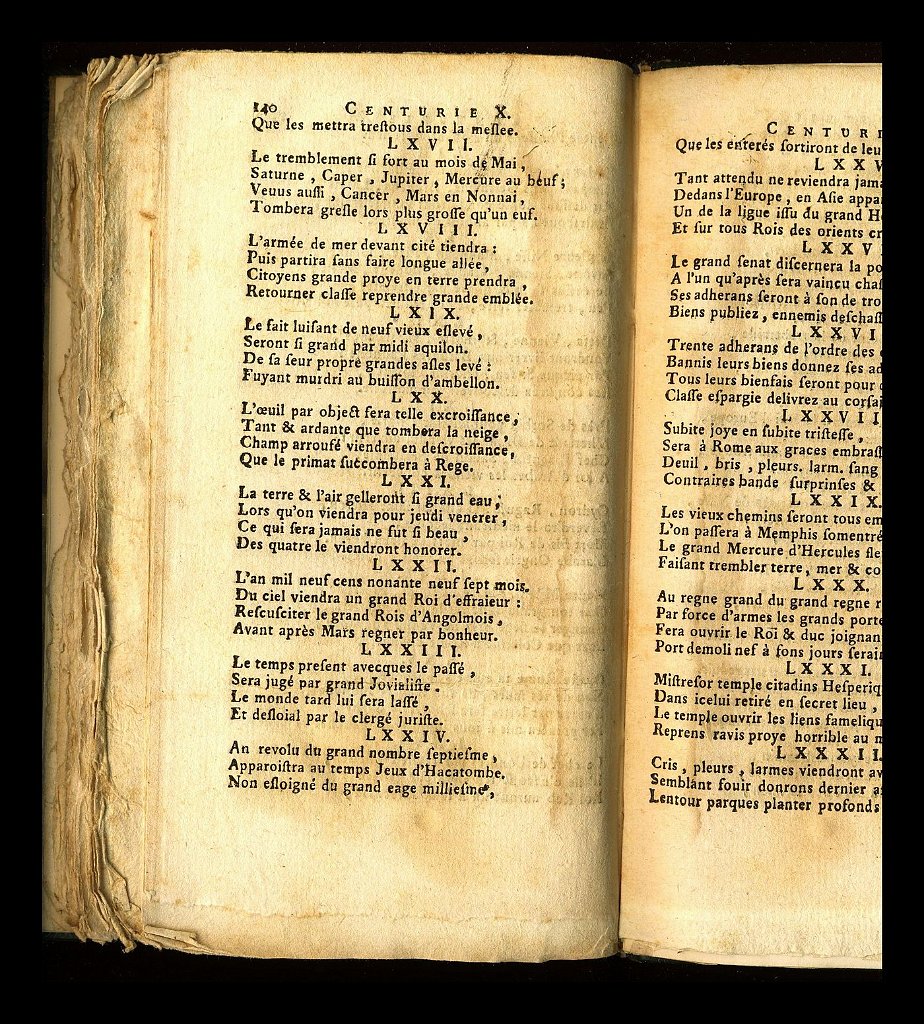 140 CENTURIE X.
Que les mettra treſtous dans la meſlee.
LXVII.
Le tremblement ſi fort au mois de Mai,
Saturne, Caper, Jupiter, Mercure au bëuf;
Veuus auſſi, Cancer, Mars en Nonnai,
Tombera greſle lors plus groſſe qu'un euf.
LXVIII.
L'armée de mer devant cité tiendra:
Puis partira ſans faire longue allée,
Citoyens grande proye en terre prendra,
Retourner claſſe reprendre grande emblée.
LXIX.
Le fait luiſant de neuf vieux eſlevé,
Seront ſi grand par midi aquilon.
De ſa ſeur propre grandes aſles levé:
Fuyant murdri au buiſſon d'ambellon.
LXX.
L'œuil par object ſera telle excroiſſance,
Tant & ardante que tombera la neige,
Champ arrouſé viendra en deſcroiſſance,
Que le primat ſuccombera à Rege.
LXXI.
La terre & l'air gelleront ſi grand eau,
Lors qu'on viendra pour jeudi venerer,
Ce qui ſera jamais ne fut ſi beau,
Des quatre le viendront honorer.
LXXII.
L'an mil neuf cens nonante neuf ſept mois.
Du ciel viendra un grand Roi d'effraieur:
Reſcuſciter le grand Rois d'Angolmois,
Avant après Mars regner par bonheur.
LXXIII.
Le temps preſent avecques le paſſé,
Sera jugé par grand Jovialiſte.
Le monde tard lui ſera laſſé,
Et deſloial par le clergé juriſte.
LXXIV.
An revolu du grand nombre ſeptieſme,
Apparoiſtra au temps Jeux d'Hacatombe.
Non eſloigné du grand eage millieſme,
CENTURI
Que les enterés ſortiront de leu
LXXV
Tant attendu ne reviendra jama
Dedans l'Europe, en Aſie appa
Un de la ligue iſſu du grand H
Et ſur tous Rois des orients cr
LXXV
Le grand ſenat diſcernera la po
A l'un qu'après ſera vaincu chaſ
Ses adherans ſeront à ſon de tro
Biens publiez, ennemis deſchaſſ
LXXVI
Trente adherans de l'ordre des
Bannis leurs biens donnez ſes ad
Tous leurs bienfais ſeront pour
Claſſe eſpargie delivrez au corſai
LXXVII
Subite joye en ſubite triſteſſe,
Sera à Rome aux graces embraſſ
Deuil, bris, pleurs. larm. ſang
Contraires bande ſurprinſes &
LXXIX.
Les vieux chemins ſeront tous em
L'on paſſera à Memphis ſomentré
Le grand Mercure d'Hercules fle
Faiſant trembler terre, mer & co
LXXX.
Au regne grand du grand regne r
Par force d'armes les grands porte
Fera ouvrir le Roi & duc joignan
Port demoli nef à fons jours ſerai
LXXXI.
Miſtreſor temple citadins Heſperiq
Dans icelui retiré en ſecret lieu,
Le temple ouvrir les liens fameliqu
Reprens ravis proye horrible au m
LXXXII.
Cris, pleurs, larmes viendront av
Semblant fouir donrons dernier a
Lentour parques planter profonds